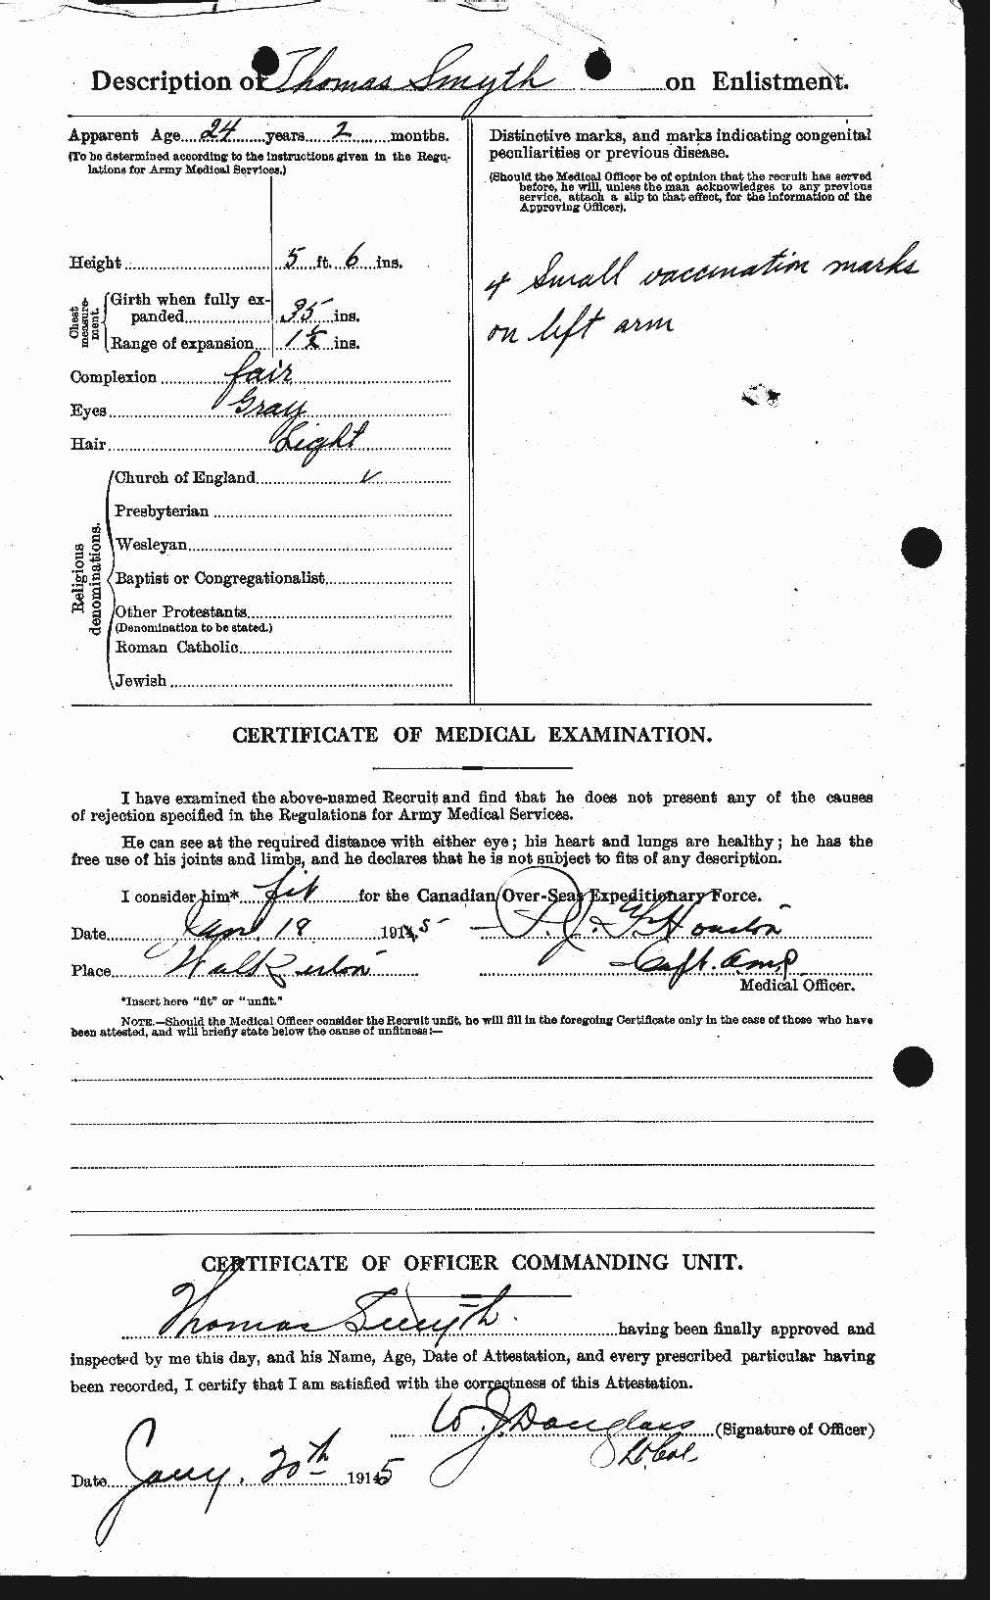 Description of Thomas Smyth on Enlistment.
Apparent Age 24 years 2 months.
(To be determined according to the instructions given in the Regu-
lations for Army Medical Services.)
Height 5 ft. 6 ins.
Chest measure-
ment.
Girth when fully ex-
panded 35 ins.
Range of expansion 1 1/2 ins.
Complexion fair
Eyes Gray
Hair Light
Religious
denominations.
Church of England ✓
Presbyterian
Wesleyan
Baptist or Congregationalist
Other Protestants
(Denomination to be stated.)
Roman Catholic
Jewish
Distinctive marks, and marks indicating congenital
peculiarities or previous disease.
(Should the Medical Officer be of opinion that the recruit has served
before, he will, unless the man acknowledges to any previous
service, attach a slip to that effect, for the information of the
Approving Officer).
4 Small vaccination marks
on left arm
CERTIFICATE OF MEDICAL EXAMINATION.
I have examined the above-named Recruit and find that he does not present any of the causes
of rejection specified in the Regulations for Army Medical Services.
He can see at the required distance with either eye; his heart and lungs are healthy; he has the
free use of his joints and limbs, and he declares that he is not subject to fits of any description.
I consider him* fit for the Canadian Over-Seas Expeditionary Force.
Date Jan. 18 1915 Houston
Place Walkerton Capt.
Medical Officer.
*Insert here "fit" or "unfit."
NOTE.—Should the Medical Officer consider the Recruit unfit, he will fill in the foregoing Certificate only in the case of those who have
been attested, and will briefly state below the cause of unfitness:—
CERTIFICATE OF OFFICER COMMANDING UNIT.
Thomas Smyth having been finally approved and
inspected by me this day, and his Name, Age, Date of Attestation, and every prescribed particular having
been recorded, I certify that I am satisfied with the correctness of this Attestation.
W. J. Douglass (Signature of Officer)
Lt. Col.
Date Jany. 20th 1915